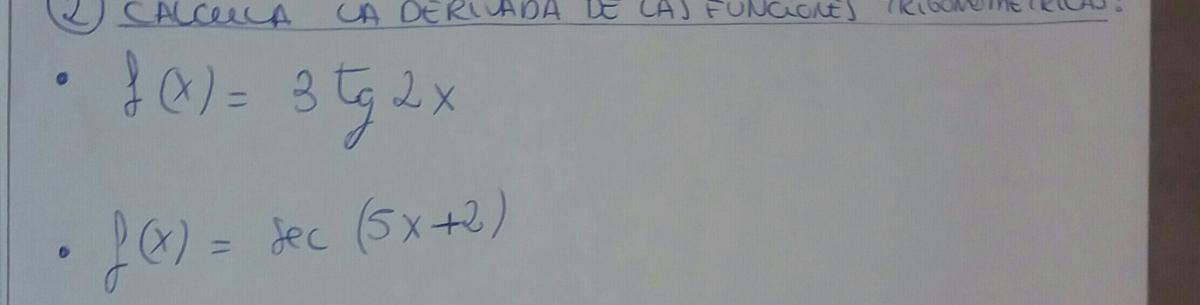 2) CALCULA LA DERIVADA DE LAS FUNCIONES TRIGONOMETRICAS:
• f(x) = 3 tg 2x
• f(x) = sec (5x+2)